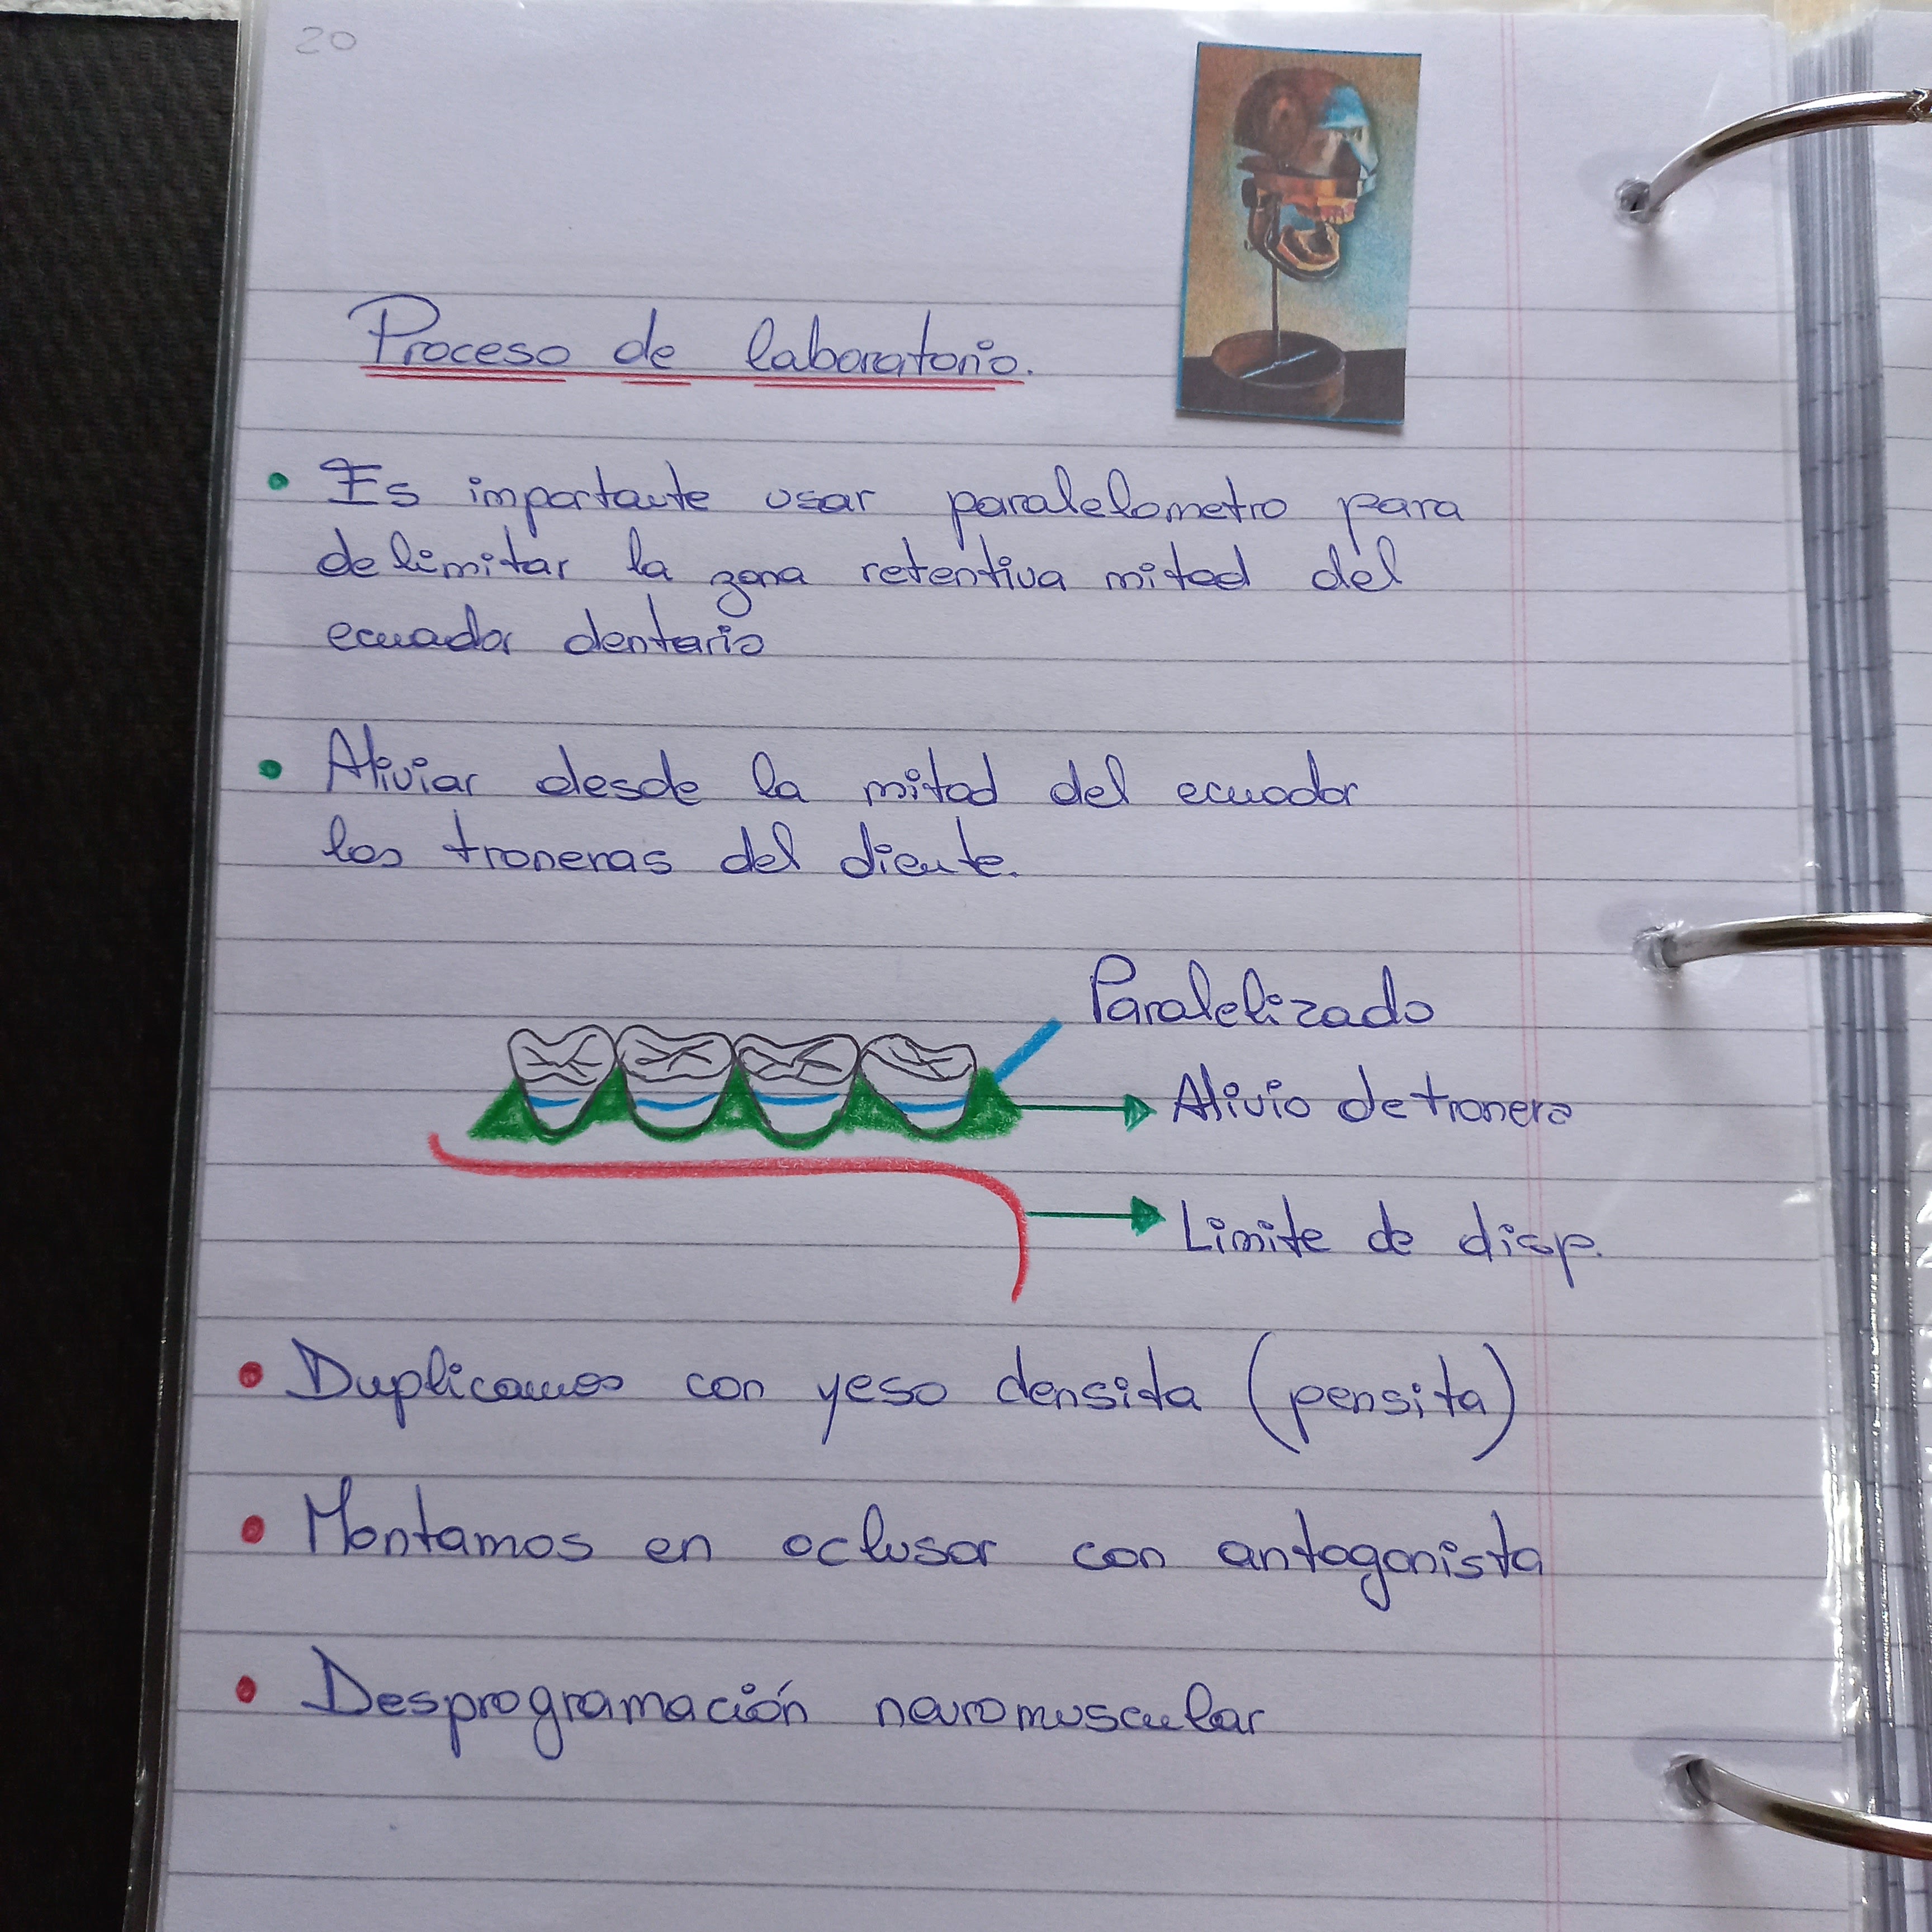 20
Proceso de laboratorio.
• Es importante usar paralelometro para
delimitar la zona retentiva mitad del
ecuador dentario
• Aliviar desde la mitad del ecuador
las troneras del diente.
Paralelizado
Alivio de tronera
Limite de disp.
• Duplicamos con yeso densita (pensita)
• Montamos en oclusor con antagonista
• Desprogramación neuromuscular